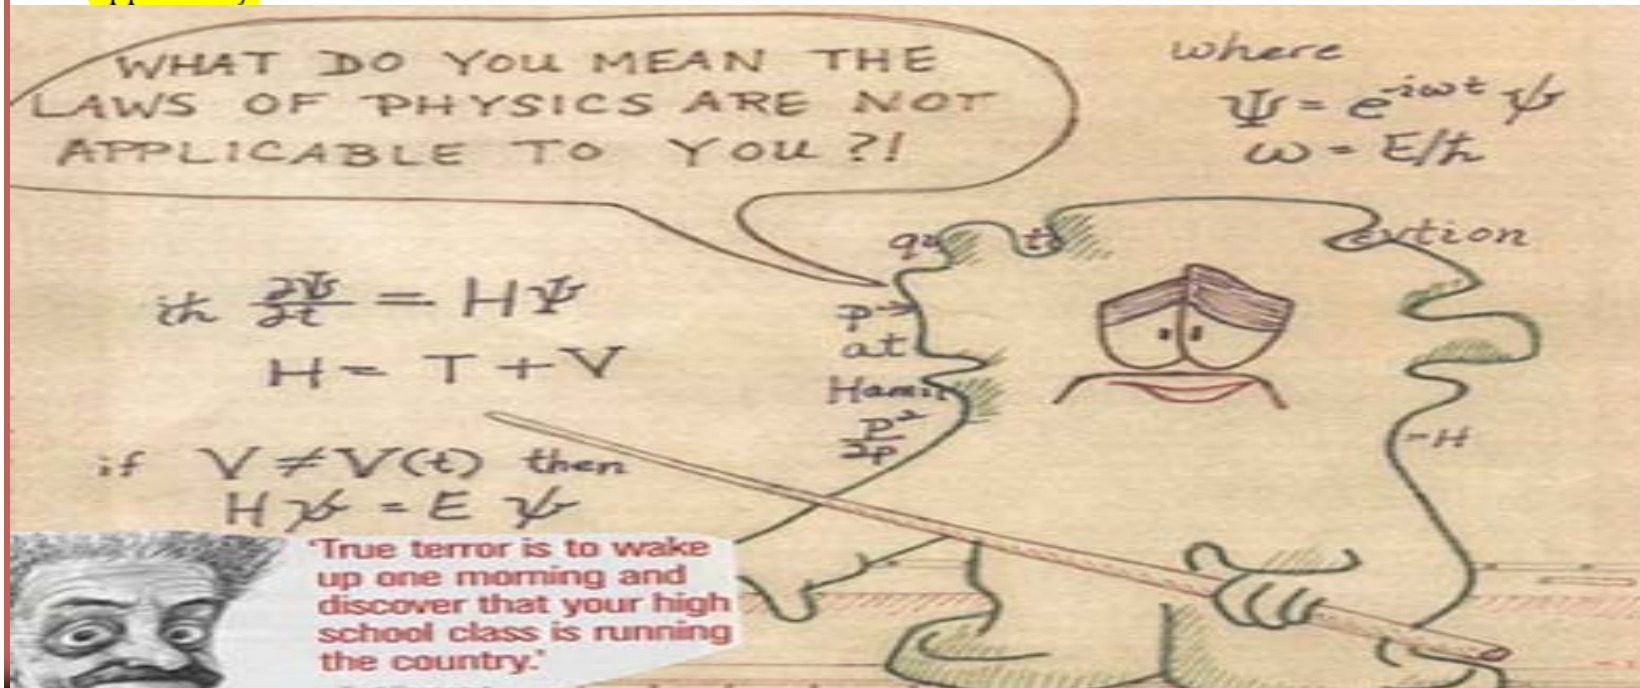 WHAT DO YOU MEAN THE
LAWS OF PHYSICS ARE NOT
APPLICABLE TO YOU?!
where
Ψ = e^-iωt ψ
ω = E/ħ
iħ ∂Ψ/∂t = HΨ
H = T + V
if V ≠ V(t) then
Hψ = E ψ
qu
p→
at
Hami
P²/2p
-H
'True terror is to wake
up one morning and
discover that your high
school class is running
the country.'